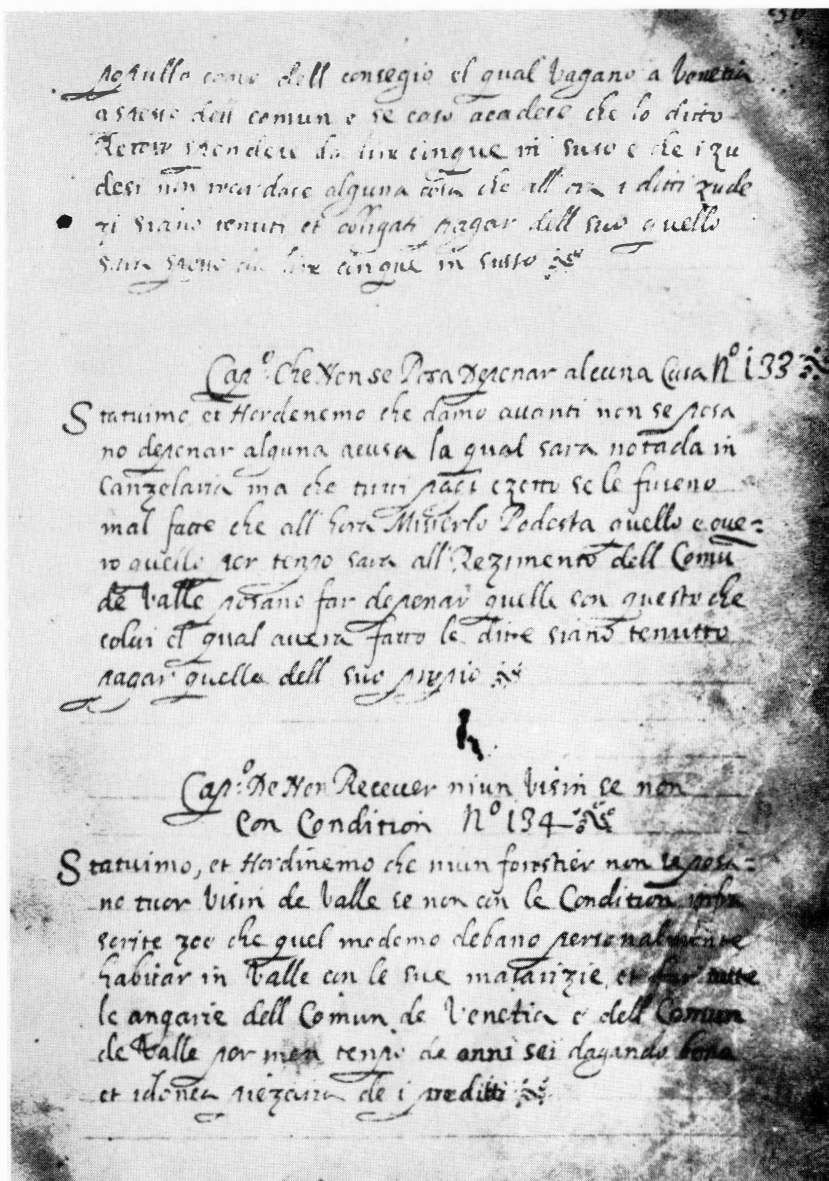 populo como dell consegio el qual vagano a Venetia
a spese dell comun e se caso acadese che lo ditto
Retor spendese da lire cinque in suso e che i zu
desi non recordase alguna cosa che all ora i ditti zude
zi siano tenuti et obligati pagar dell suo quello
sara speso da lire cinque in susso
Cap.º Che Non se Posa Depenar alcuna Cusa Nº 133
Statuimo, et Hordenemo che damo auanti non se posa
no depenar alguna acusa la qual sara notada in
Canzelaria ma che tutti pagi ezetto se le fuseno
mal fatte che all hora Miserlo Podesta quello e oue=
ro quello per tenpo sara all Rezimento dell Comũ
de Valle posano far depenar quelle con questo che
colui el qual auera fatto le ditte siano tenutto
pagar quelle dell suo propio
Cap.º De Non Receuer niun Visin se non
Con Condition Nº 134
Statuimo, et Hordinemo che niun forestier non se posa=
no tuor Visin de Valle se non con le Condition infra
scrite zoe che quel medemo debano personalmente
habitar in Valle con le sue masarizie, et far tutte
le angarie dell Comun de Venetia e dell Comun
de Valle per men tenpo de anni sei dagando bona
et idonea piezaria de i preditti